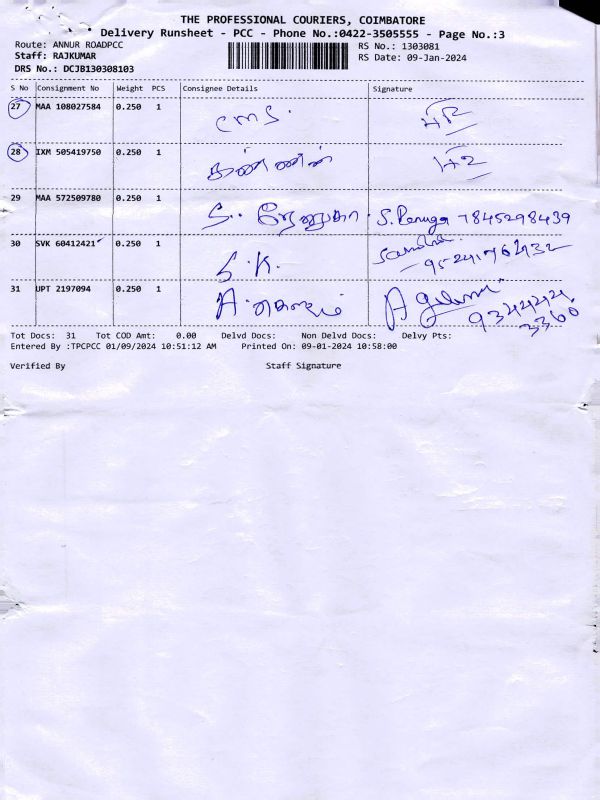 THE PROFESSIONAL COURIERS, COIMBATORE
Delivery Runsheet - PCC - Phone No.:0422-3505555 - Page No.:3
Route: ANNUR ROADPCC RS No.: 1303081
Staff: RAJKUMAR RS Date: 09-Jan-2024
DRS No.: DCJB130308103
S No Consignment No Weight PCS Consignee Details Signature
27 MAA 108027584 0.250 1 CMS.
28 IXM 505419750 0.250 1 கண்ணன்
29 MAA 572509780 0.250 1 S. ரேணுகா S. Renuga 7845298439
30 SVK 60412421 0.250 1 S.K.
31 UPT 2197094 0.250 1 A.
Tot Docs: 31 Tot COD Amt: 0.00 Delvd Docs: Non Delvd Docs: Delvy Pts:
Entered By :TPCPCC 01/09/2024 10:51:12 AM Printed On: 09-01-2024 10:58:00
Verified By Staff Signature